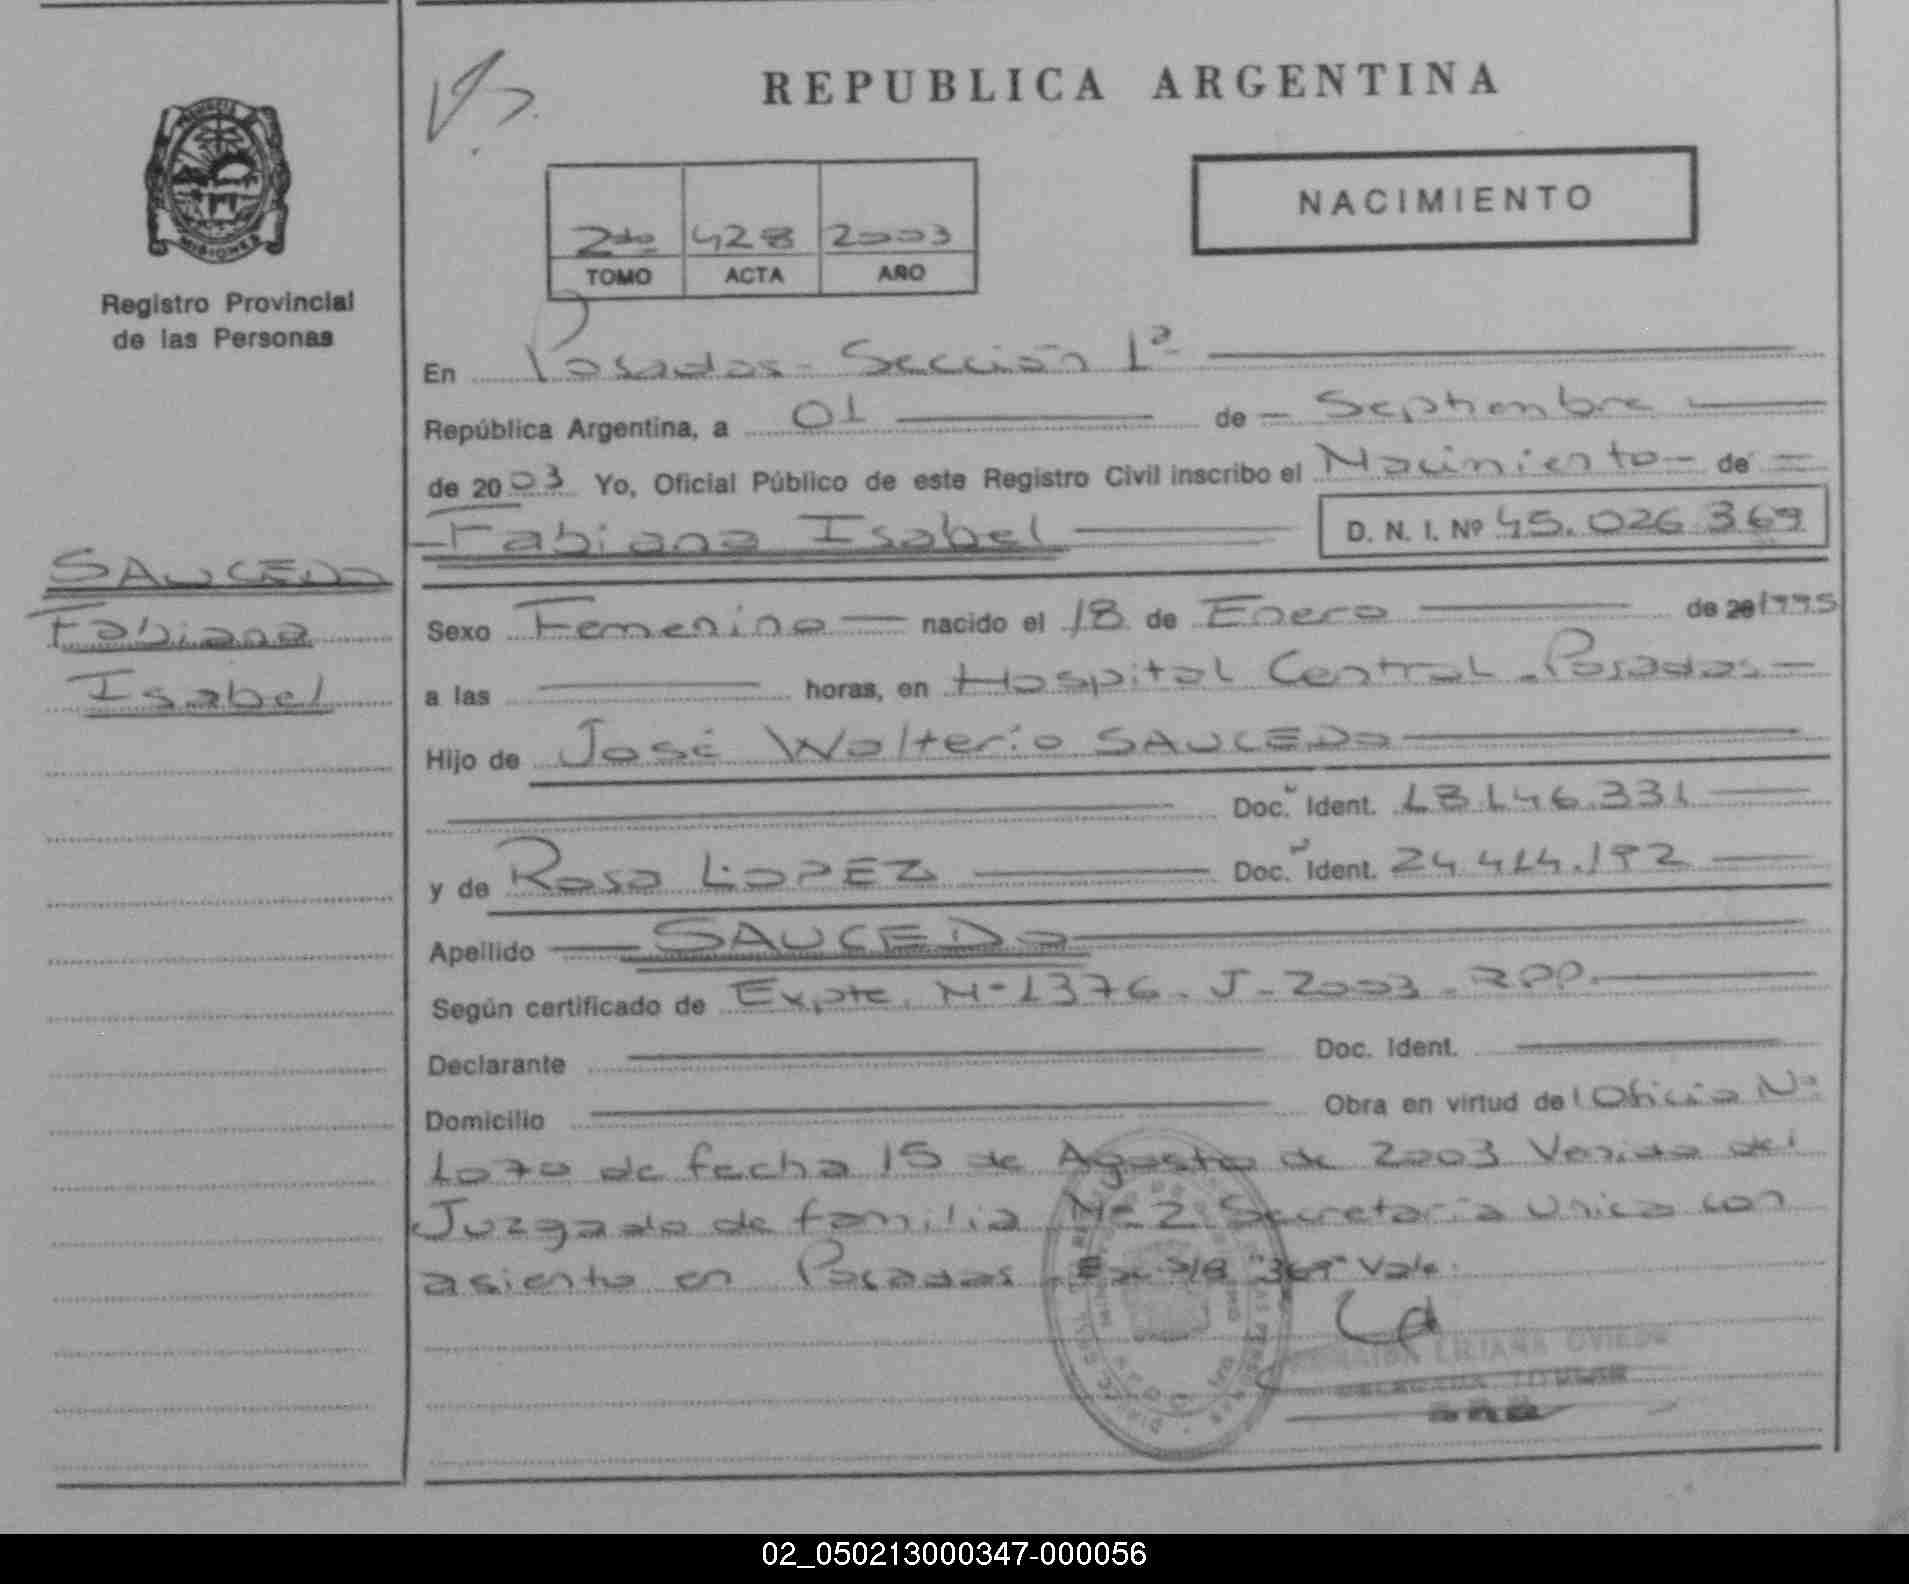 REPUBLICA ARGENTINA
NACIMIENTO
2do 428 2003
TOMO ACTA AÑO
PROVINCIA
MISIONES
Registro Provincial
de las Personas
SAUCEDO
Fabiana
Isabel
En Posadas - Sección 1ª
República Argentina, a 01 de Septiembre
de 2003 Yo, Oficial Público de este Registro Civil inscribo el Nacimiento de
Fabiana Isabel D. N. I. Nº 45.026.369
Sexo Femenino nacido el 18 de Enero de 20 1995
a las horas, en Hospital Central - Posadas
Hijo de José Walterio SAUCEDO
Doc. Ident. 18.146.331
y de Rosa LOPEZ Doc. Ident. 24.414.192
Apellido SAUCEDO
Según certificado de Expte. Nº 1376 - J - 2003 - RPP.
Declarante Doc. Ident.
Domicilio Obra en virtud del Oficio Nº
1070 de fecha 15 de Agosto de 2003 Venido del
Juzgado de familia Nº 2 Secretaria unica con
asiento en Posadas. S/B "369" Vale.
LILIANA OVIEDO
DELEGADA TITULAR
02_050213000347-000056